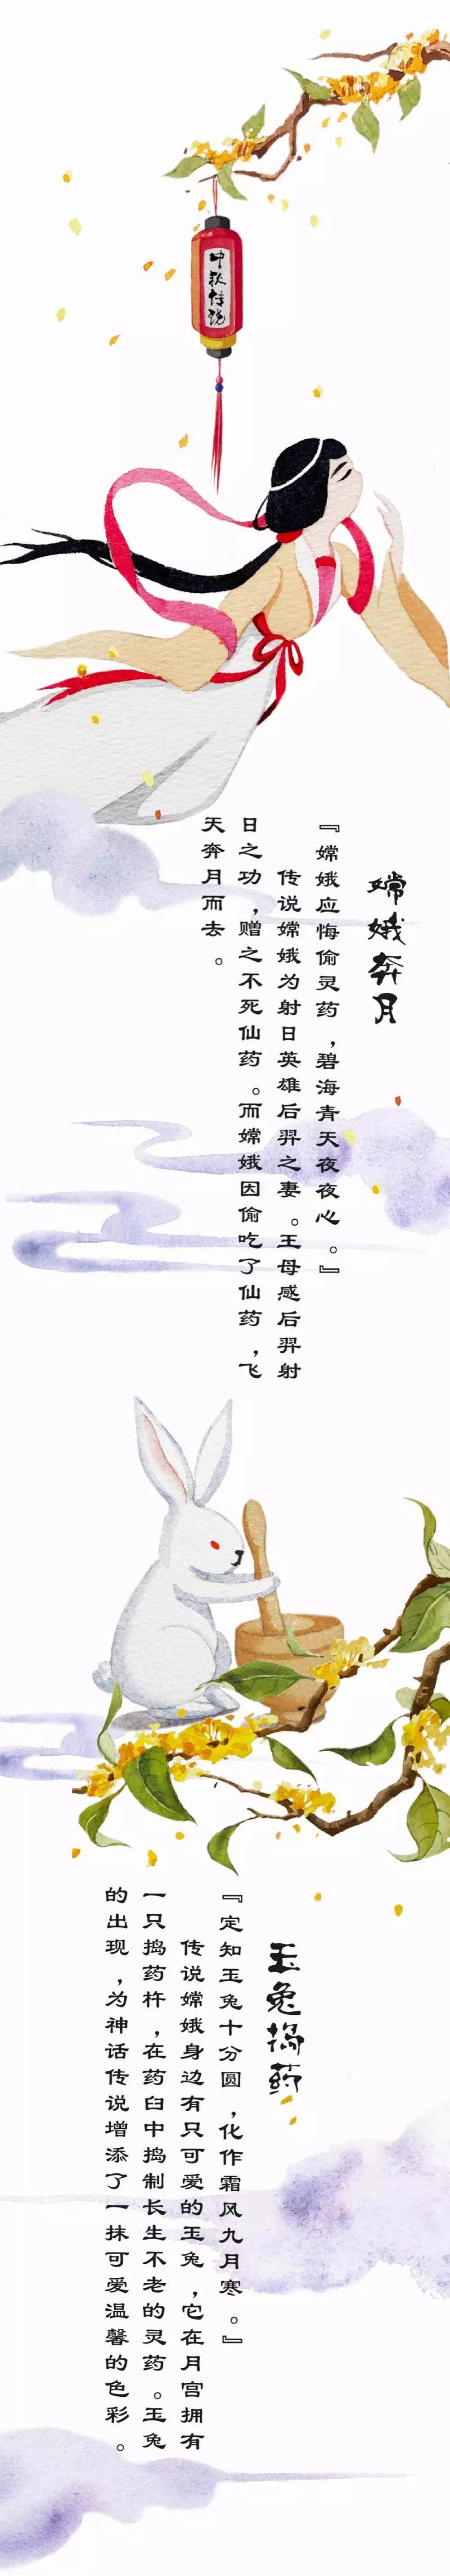 中秋传说
嫦娥奔月
『嫦娥应悔偷灵药，碧海青天夜夜心。』
传说嫦娥为射日英雄后羿之妻。王母感后羿射
日之功，赠之不死仙药。而嫦娥因偷吃了仙药，飞
天奔月而去。
玉兔捣药
『定知玉兔十分圆，化作霜风九月寒。』
传说嫦娥身边有只可爱的玉兔，它在月宫拥有
一只捣药杵，在药臼中捣制长生不老的灵药。玉兔
的出现，为神话传说增添了一抹可爱温馨的色彩。